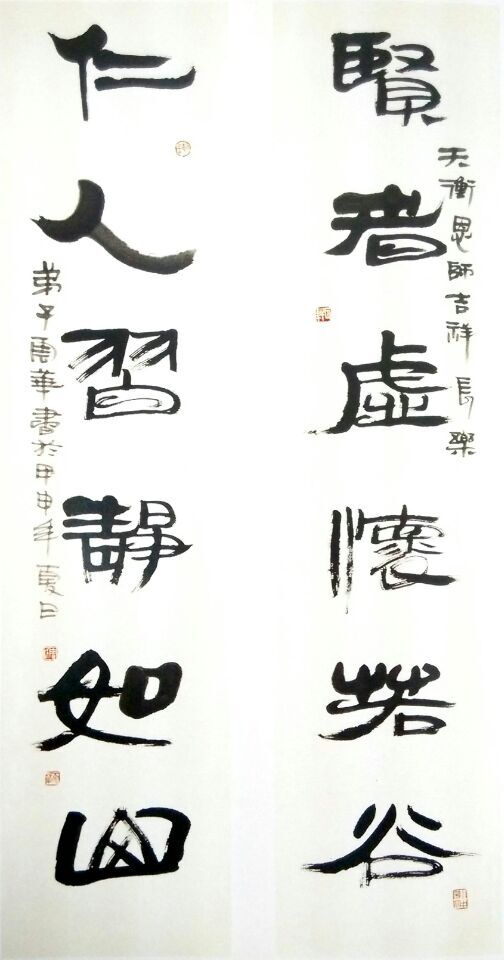 賢者虛懷若谷
天衡恩師吉祥 長樂
仁人習靜如山
弟子雷華書於甲申年夏日